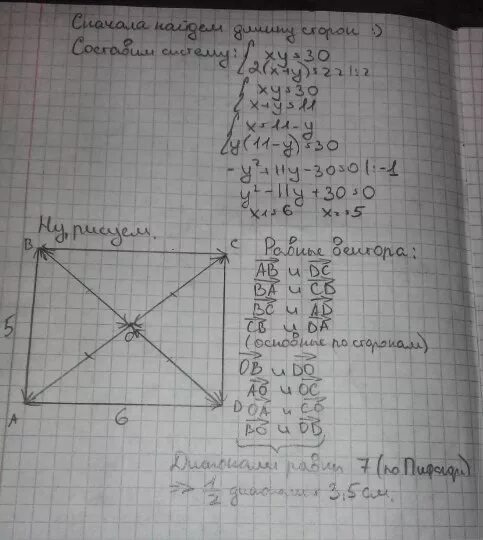 Сначала найдем длину сторон :)
Составим систему: { xy=30
2(x+y)=22 |:2
{ xy=30
x+y=11
{ x=11-y
y(11-y)=30
-y²+11y-30=0 |:-1
y²-11y+30=0
x₁=6 x₂=5
Ну, рисуем.
B
C
5
O
A
6
D
Равные вектора:
AB и DC
BA и CD
BC и AD
CB и DA
(основные по сторонам)
OB и DO
AO и OC
OA и CO
BO и OD
Диагонали равны 7 (по Пифагору)
=> 1/2 диагонали 3,5 см.